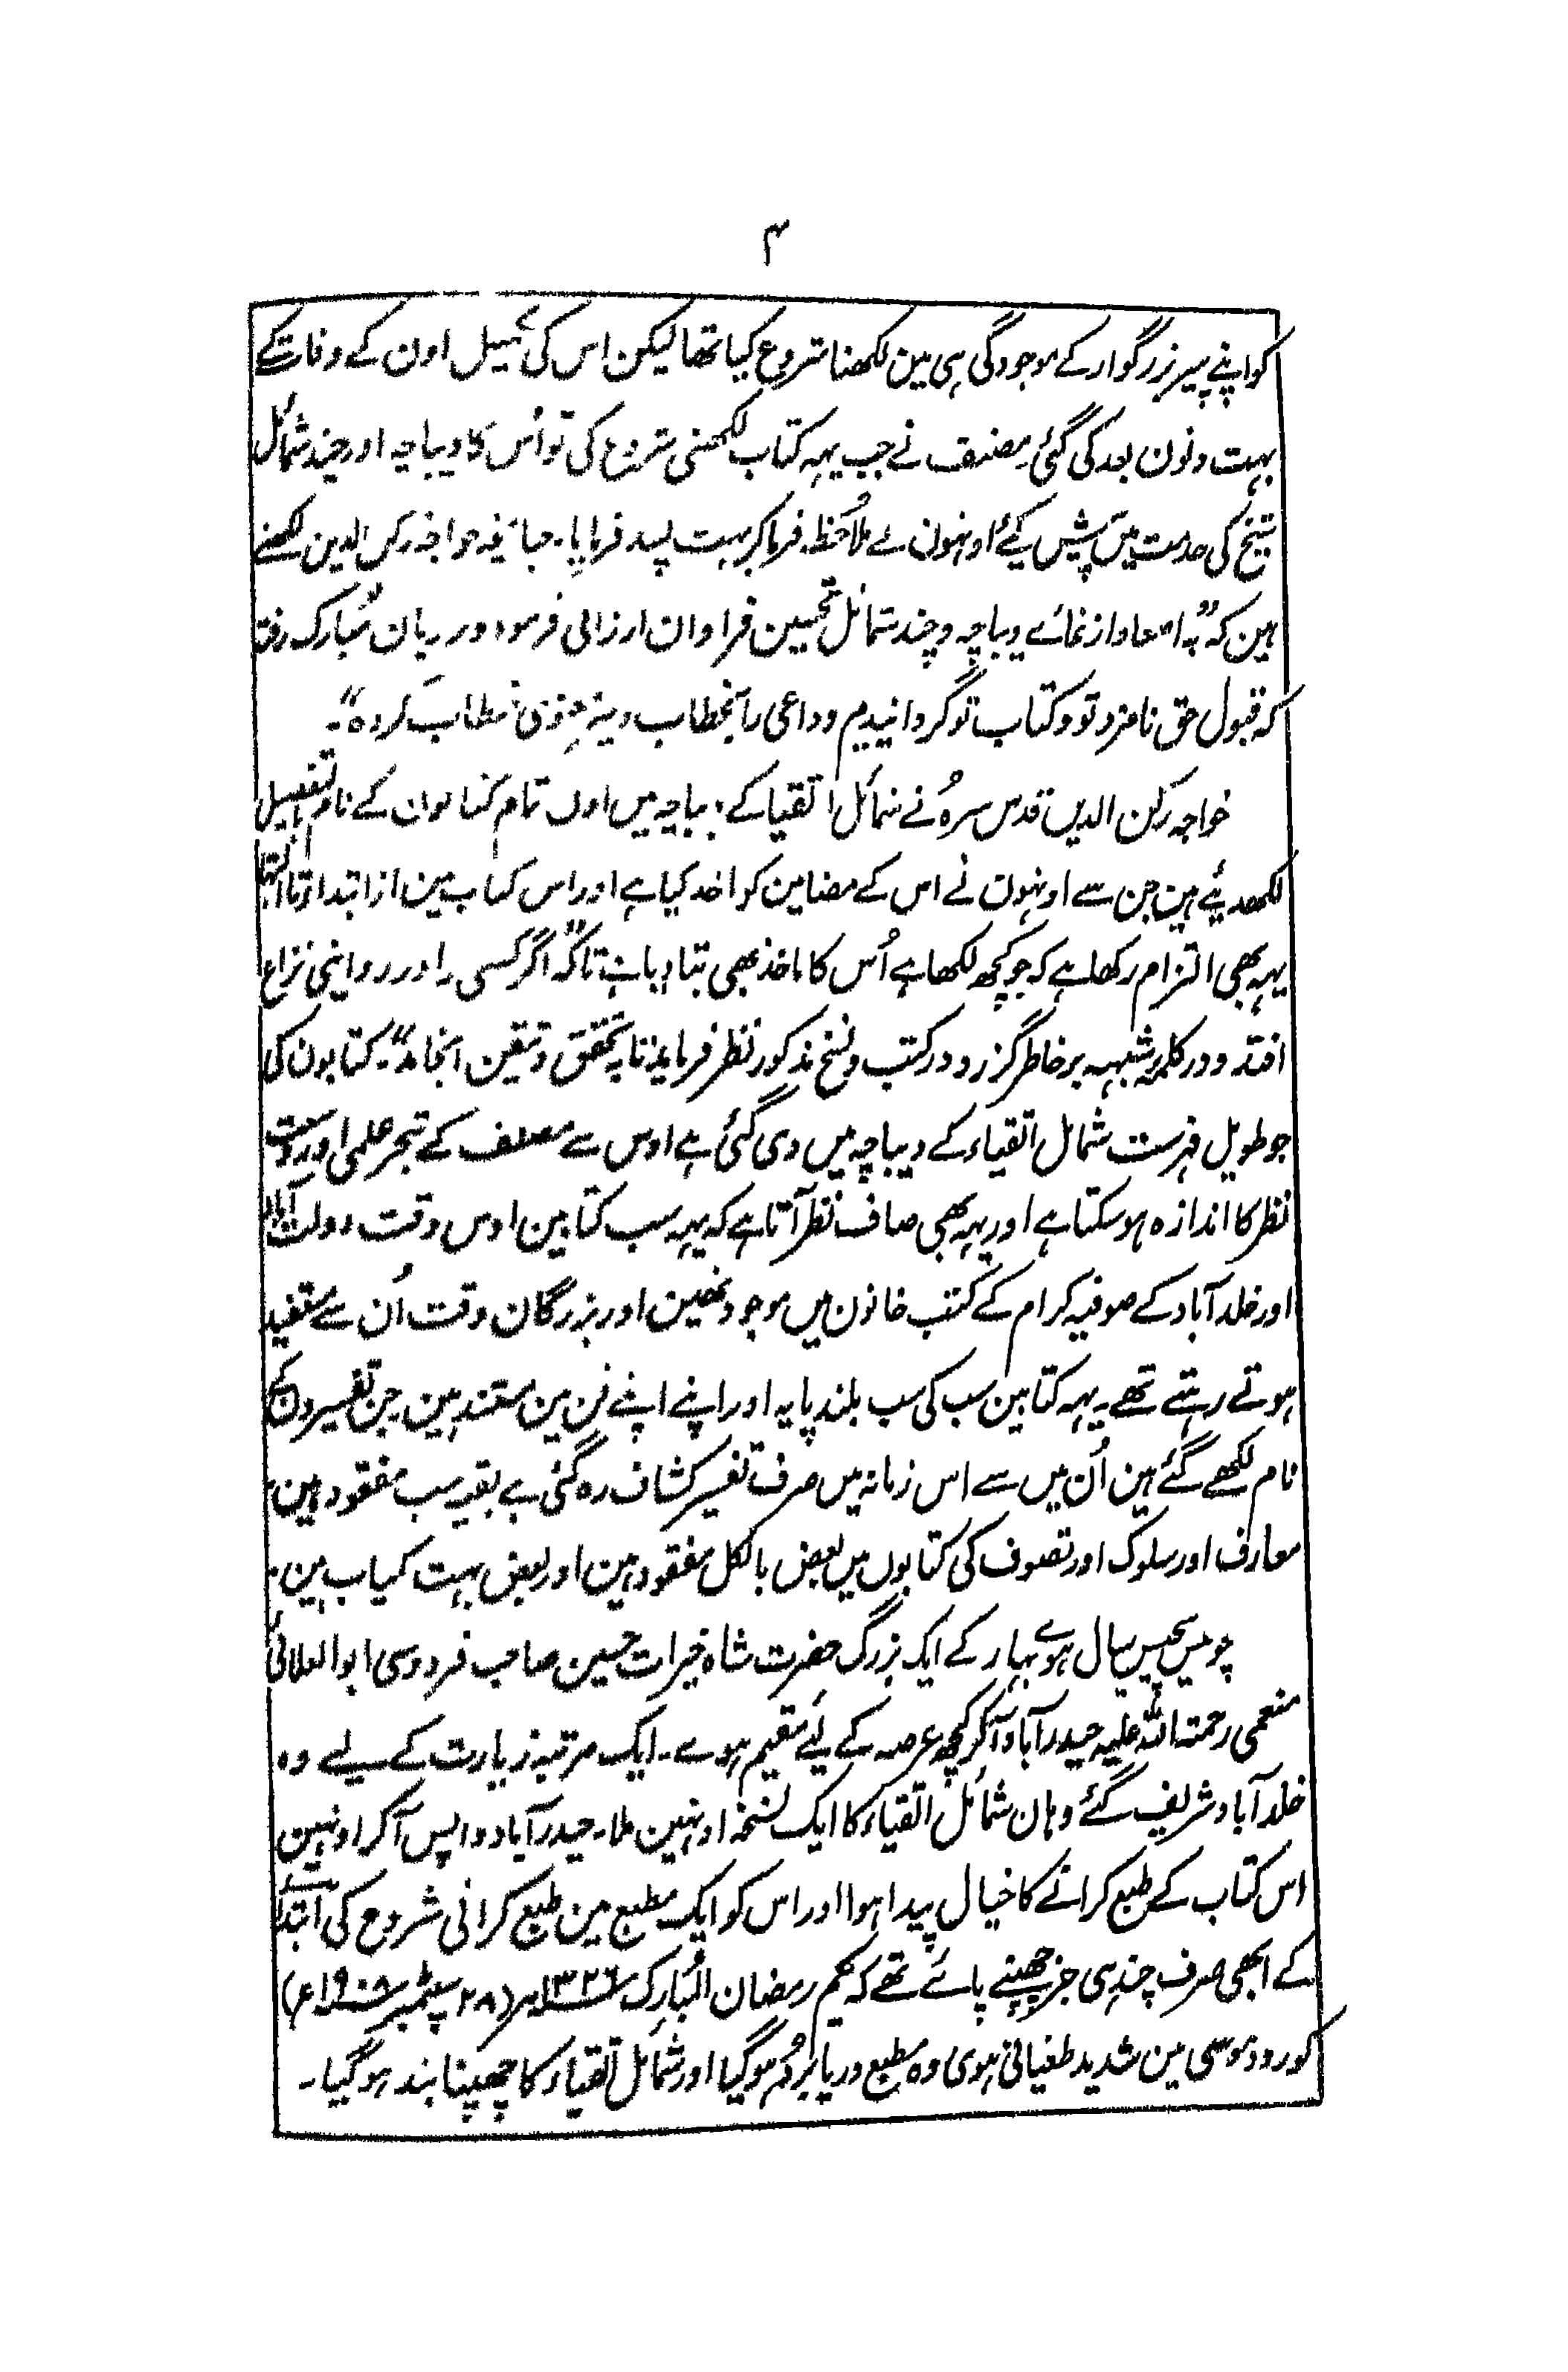 ۴
کو اپنے پیر بزرگوار کے موجودگی ہی مین لکھنا شروع کیا تھا لیکن اس کی تکمیل اون کے وفات کے
بہت دنون بعد کی گئی۔ مصنف نے جب یہہ کتاب لکھنی شروع کی تو اُس کا دیباچہ اور چند شمائل
شیخ کی خدمت میں پیش کیے اونہون نے ملاحظہ فرما کر بہت پسند فرمایا۔ چنانچہ خواجہ رکن الدین لکھتے
ہین کہ "بہ وچند شمائل تحسین فراوان ارزانی فرمود و بر زبان مبارک رفت
کہ قبول حق نامزد تو و کتاب تو گردانیدیم و داعی را بخطاب دبیر معنوی مخاطب کردہ"۔
خواجہ رکن الدین قدس سرہُ نے شمائل اتقیا کے دیباچہ میں اول تمام کتابون کے نام بتفصیل
لکھدیئے ہین جن سے اونہون نے اس کے مضامین کو اخذ کیا ہے اور اس کتاب مین از ابتدا تا انتہا
یہہ بھی التزام رکھا ہے کہ جو کچھ لکھا ہے اُس کا ماخذ بھی بتا دیا ہے تا کہ "اگر کسی را در روایتی نزاع
افتد و در کلمہ شبہہ بر خاطر گزرد در کتب و نسخ مذکور نظر فرماید تا بہ تحقیق و تیقین انجامد"۔ کتابون کی
جو طویل فہرست شمائل اتقیاء کے دیباچہ میں دی گئی ہے اوس سے مصنف کے تبحر علمی اور وسعت
نظر کا اندازہ ہو سکتا ہے اور یہہ بھی صاف نظر آتا ہے کہ یہہ سب کتابین اوس وقت دولت آباد
اور خلد آباد کے صوفیہ کرام کے کتب خانون میں موجود تھین اور بزرگان وقت اُن سے مستفید
ہوتے رہتے تھے۔ یہہ کتابین سب کی سب بلند پایہ اور اپنے اپنے فن مین مستند ہین جن تفسیرون کے
نام لکھے گئے ہین اُن میں سے اس زمانہ میں صرف تفسیر کشاف رہ گئی ہے بقیہ سب مفقود ہین۔
معارف اور سلوک اور تصوف کی کتابوں میں بعض بالکل مفقود ہین اور بعض بہت کمیاب ہین۔
چوبیس پچیس سال ہوے بہار کے ایک بزرگ حضرت شاہ خیرات حسین صاحب فردوسی ابوالعلائی
منعمی رحمتہ اللہ علیہ حیدرآباد آکر کچھ عرصہ کے لئے مقیم ہوے۔ ایک مرتبہ زیارت کے لیے وہ
خلد آباد شریف گئے وہان شمائل اتقیاء کا ایک نسخہ اونہین ملا۔ حیدرآباد واپس آکر اونہین
اس کتاب کے طبع کرانے کا خیال پیدا ہوا اور اس کو ایک مطبع مین طبع کرانی شروع کی ابتدا
کے ابھی صرف چند ہی جز چھپنے پائے تھے کہ یکم رمضان المبارک ۱۳۲۶ھ (۲۸ سپٹمبر ۱۹۰۸ع)
کو رود موسی مین شدید طغیانی ہوی وہ مطبع دریا برد ہو گیا اور شمائل اتقیاء کا چھپنا بند ہو گیا۔